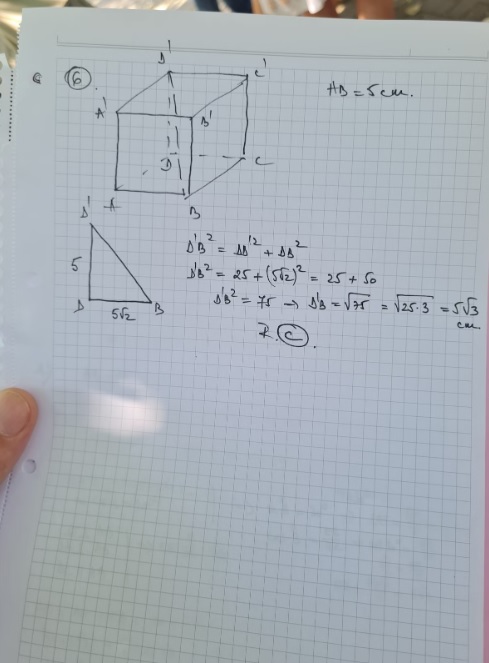 6
D'
C'
AB = 5 cm.
A'
B'
D
C
A
B
D'
5
D
B
5√2
D'B² = DD'² + DB²
D'B² = 25 + (5√2)² = 25 + 50
D'B² = 75 → D'B = √75 = √25·3 = 5√3
cm
R. C.